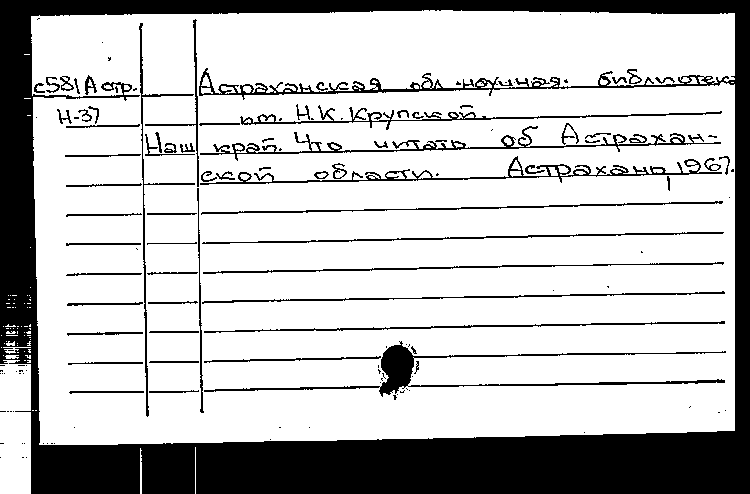 с581Астр. Астраханская обл. научная. библиотека
Н-37 им. Н.К.Крупской.
Наш край. Что читать об Астрахан-
ской области. Астрахань, 1967.